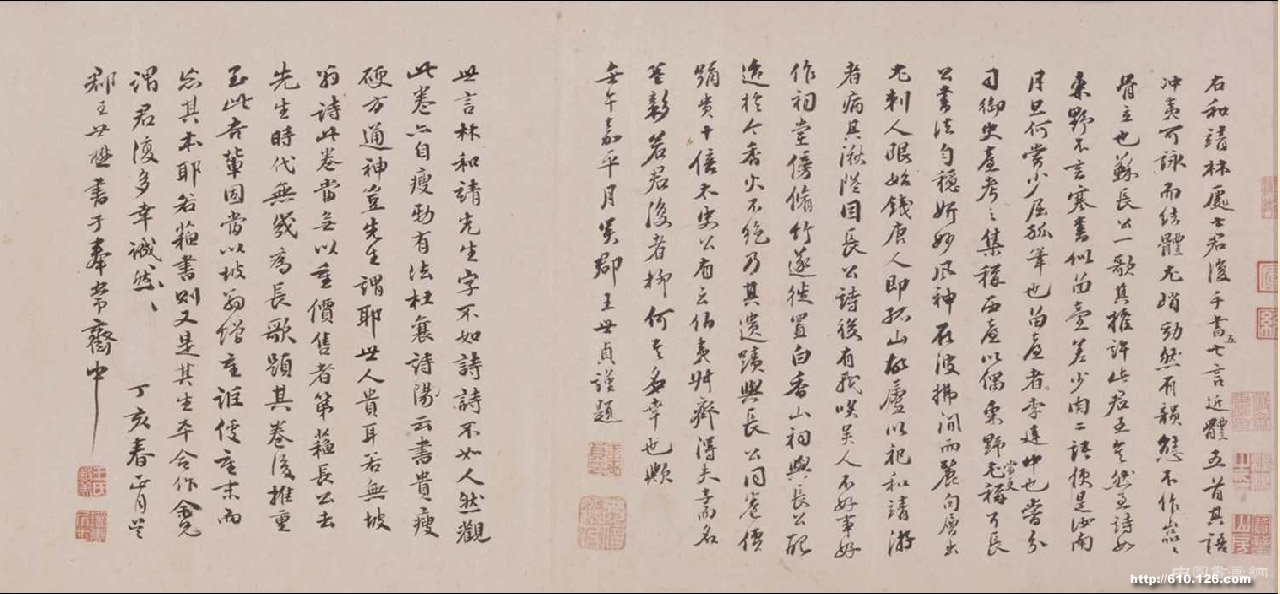 右和靖林處士君復手書七言近體五首其語
冲夷可詠而結體尤峭勁然有韻態不作嵓嵓
骨立也蘇長公一歌其推許此君至矣然至詩如
東野不言寒書似留臺差少肉二語便是汝南
月旦何嘗少屈狐筆也留臺者李建中也嘗分
司御史臺考之集稱西臺以偶東野尤稱可長
公書法勻穩妍妙風神在波拂間而麗句層出
尤刺人眼始錢唐人即孤山故廬以祀和靖游
者病其湫陋因長公詩後有我笑吳人不好事好
作祠堂傍脩竹遂徙置白香山祠與長公配
迨於今香火不絕乃其遺蹟與長公同卷價
踊貴十倍太史公有云伯夷叔齊得夫子而名
益彰若君復者抑何其多幸也歟
壬午嘉平月吳郡王世貞謹題
世言林和靖先生字不如詩詩不如人然觀
此卷亦自瘦勁有法杜襄詩陽云書貴瘦
硬方通神豈先生謂耶世人貴耳若無坡
翁詩此卷當無以重價售者第蘇長公去
先生時代無幾為長歌題其卷後推重
至此吾輩固當以坡翁增重誰使重末而
忘其本耶若蘇書則又是其生平合作會兄
謂君復多幸誠然誠然 丁亥春正月吳
郡王世懋書于奉常齋中
http://610.126.com